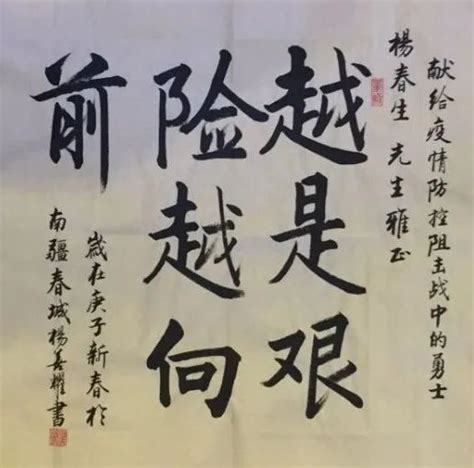 献给疫情防控阻击战中的勇士
楊春生 先生雅正
越是艰
险越向
前
嵗在庚子新春於
南疆春城楊善耀書